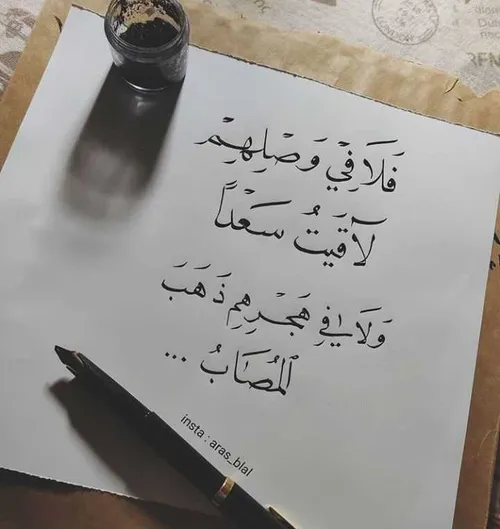 فَلَا فِيْ وَصْلِهِمْ
لَاقَيتُ سَعْداً
وَلَا فِي هَجْرِهِم ذَهَبَ
ٱلمُصَابُ ...
insta : aras_blal